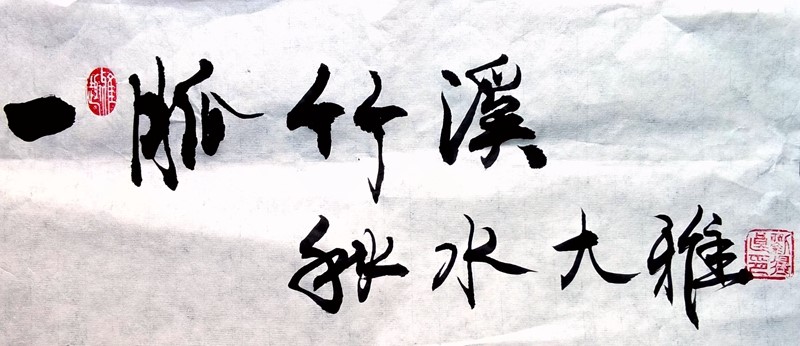 一脈竹溪
秋水大雅